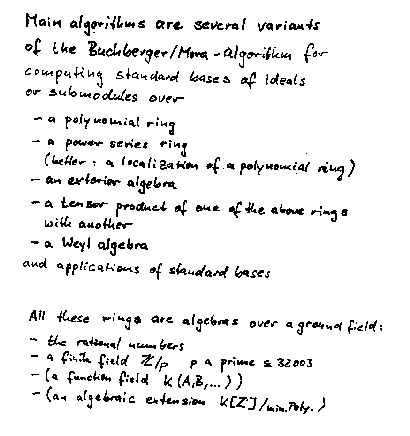 Main algorithms are several variants
of the Buchberger/Mora-Algorithm for
computing standard bases of ideals
or submodules over
- a polynomial ring
- a power series ring
(better: a localization of a polynomial ring)
- an exterior algebra
- a tensor product of one of the above rings
with another
- a Weyl algebra
and applications of standard bases
All these rings are algebras over a ground field:
- the rational numbers
- a finite field ℤ/p p a prime ≤ 32003
- (a function field K(A,B,...))
- (an algebraic extension K[Z]/min.Poly.)